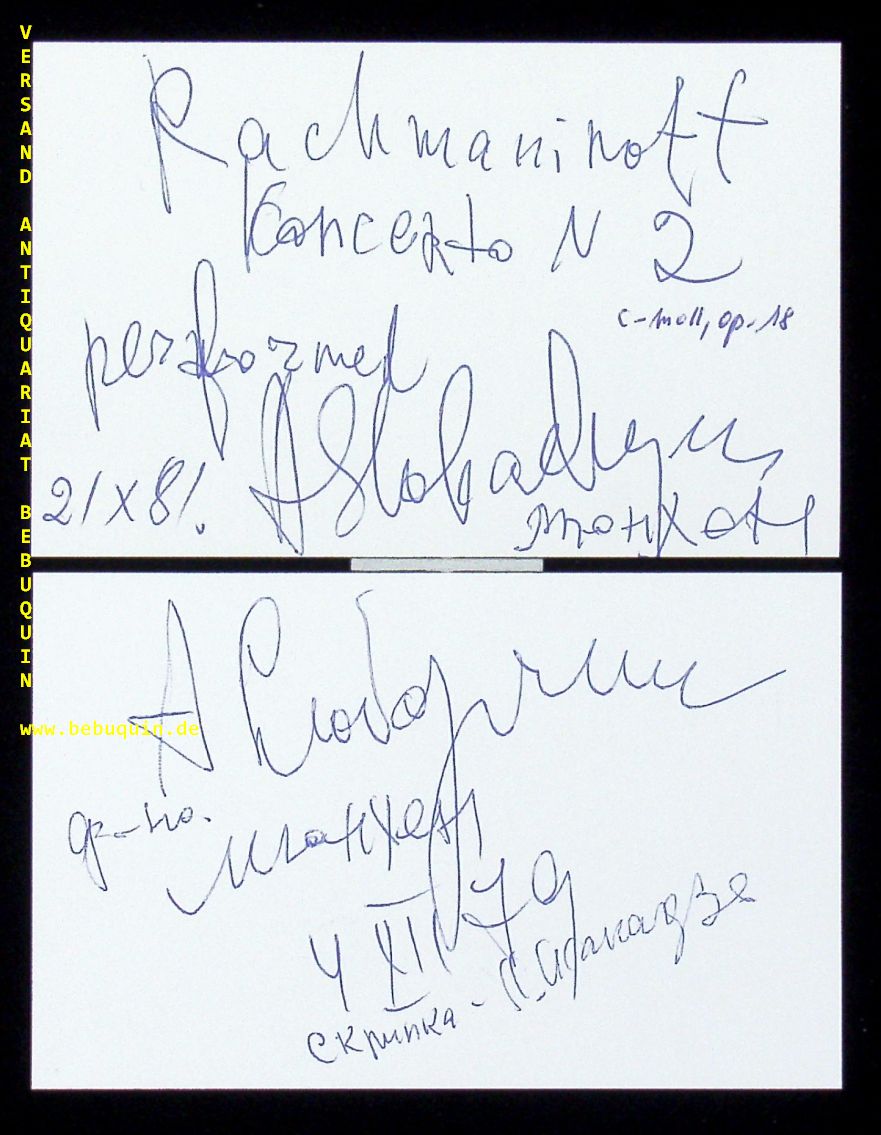 VERSAND ANTIQUARIAT BEBUQUIN
www.bebuquin.de
Rachmaninoff
Concerto N 2
c-moll, op. 18
performed
ASlobadyanik
21 X 81.
Мюнхен
А Слободяник
ф-но.
Мюнхен
4 XII 79
скрипка -